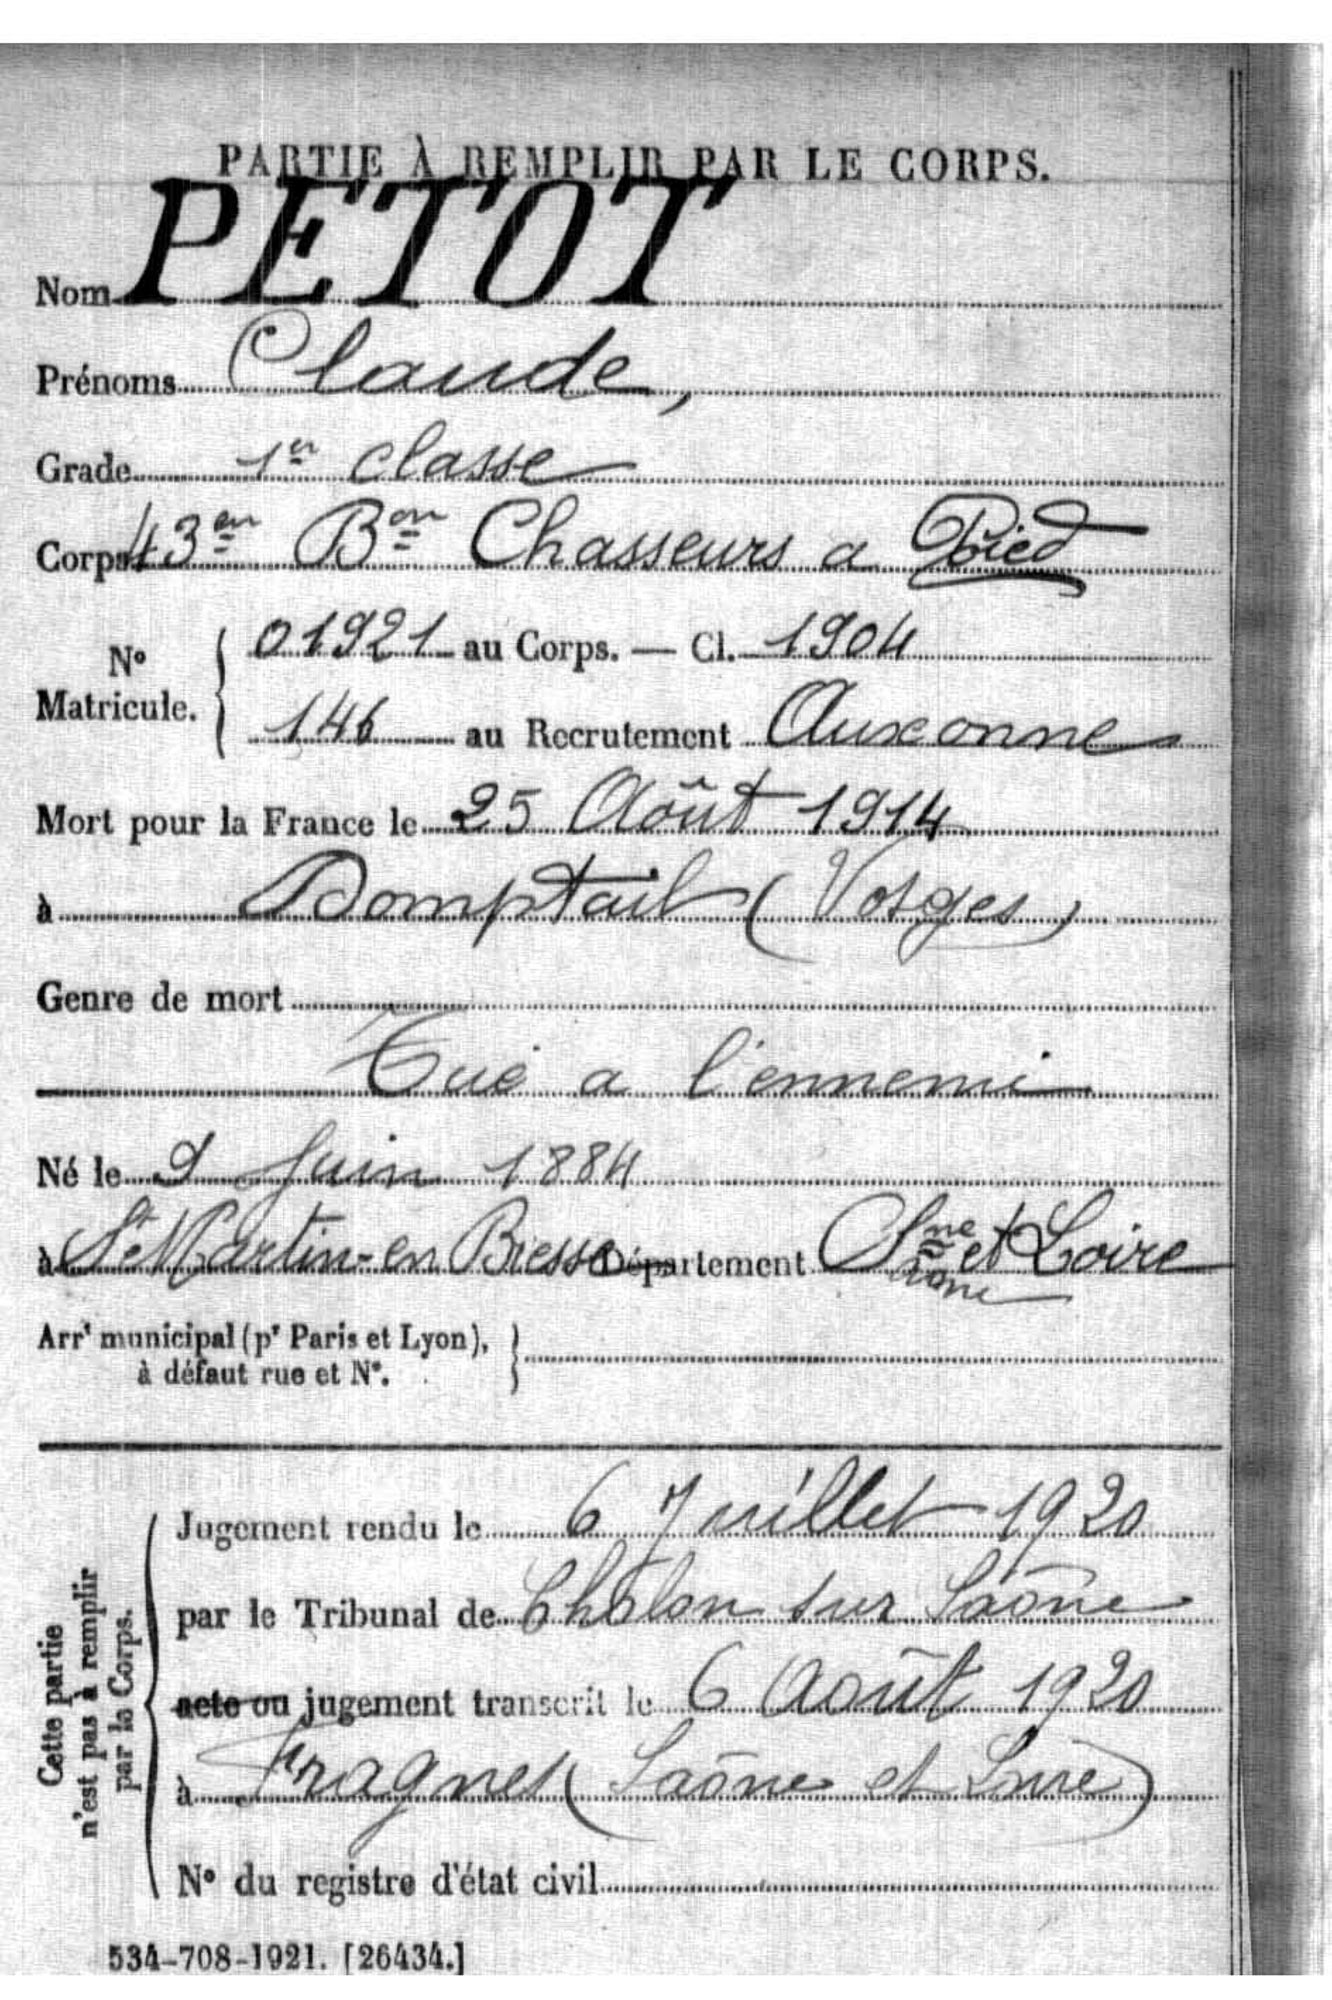 PARTIE À REMPLIR PAR LE CORPS.
Nom PETOT
Prénoms Claude,
Grade 1er classe
Corps 43em Bon Chasseurs a Pied
No Matricule. 01921 au Corps. — Cl. 1904
146 au Recrutement Auxonne
Mort pour la France le 25 Août 1914
à Domptail (Vosges)
Genre de mort
Tué a l'ennemi
Né le 9 Juin 1884
à St Martin-en Bresse Département Sne et Loire
Arrt municipal (pr Paris et Lyon),
à défaut rue et No.
Cette partie
n'est pas à remplir
par le Corps.
Jugement rendu le 6 Juillet 1920
par le Tribunal de Chalon sur Saône
acte ou jugement transcrit le 6 Août 1920
à Fragnes (Saône et Loire)
No du registre d'état civil
534-708-1921. [26434.]